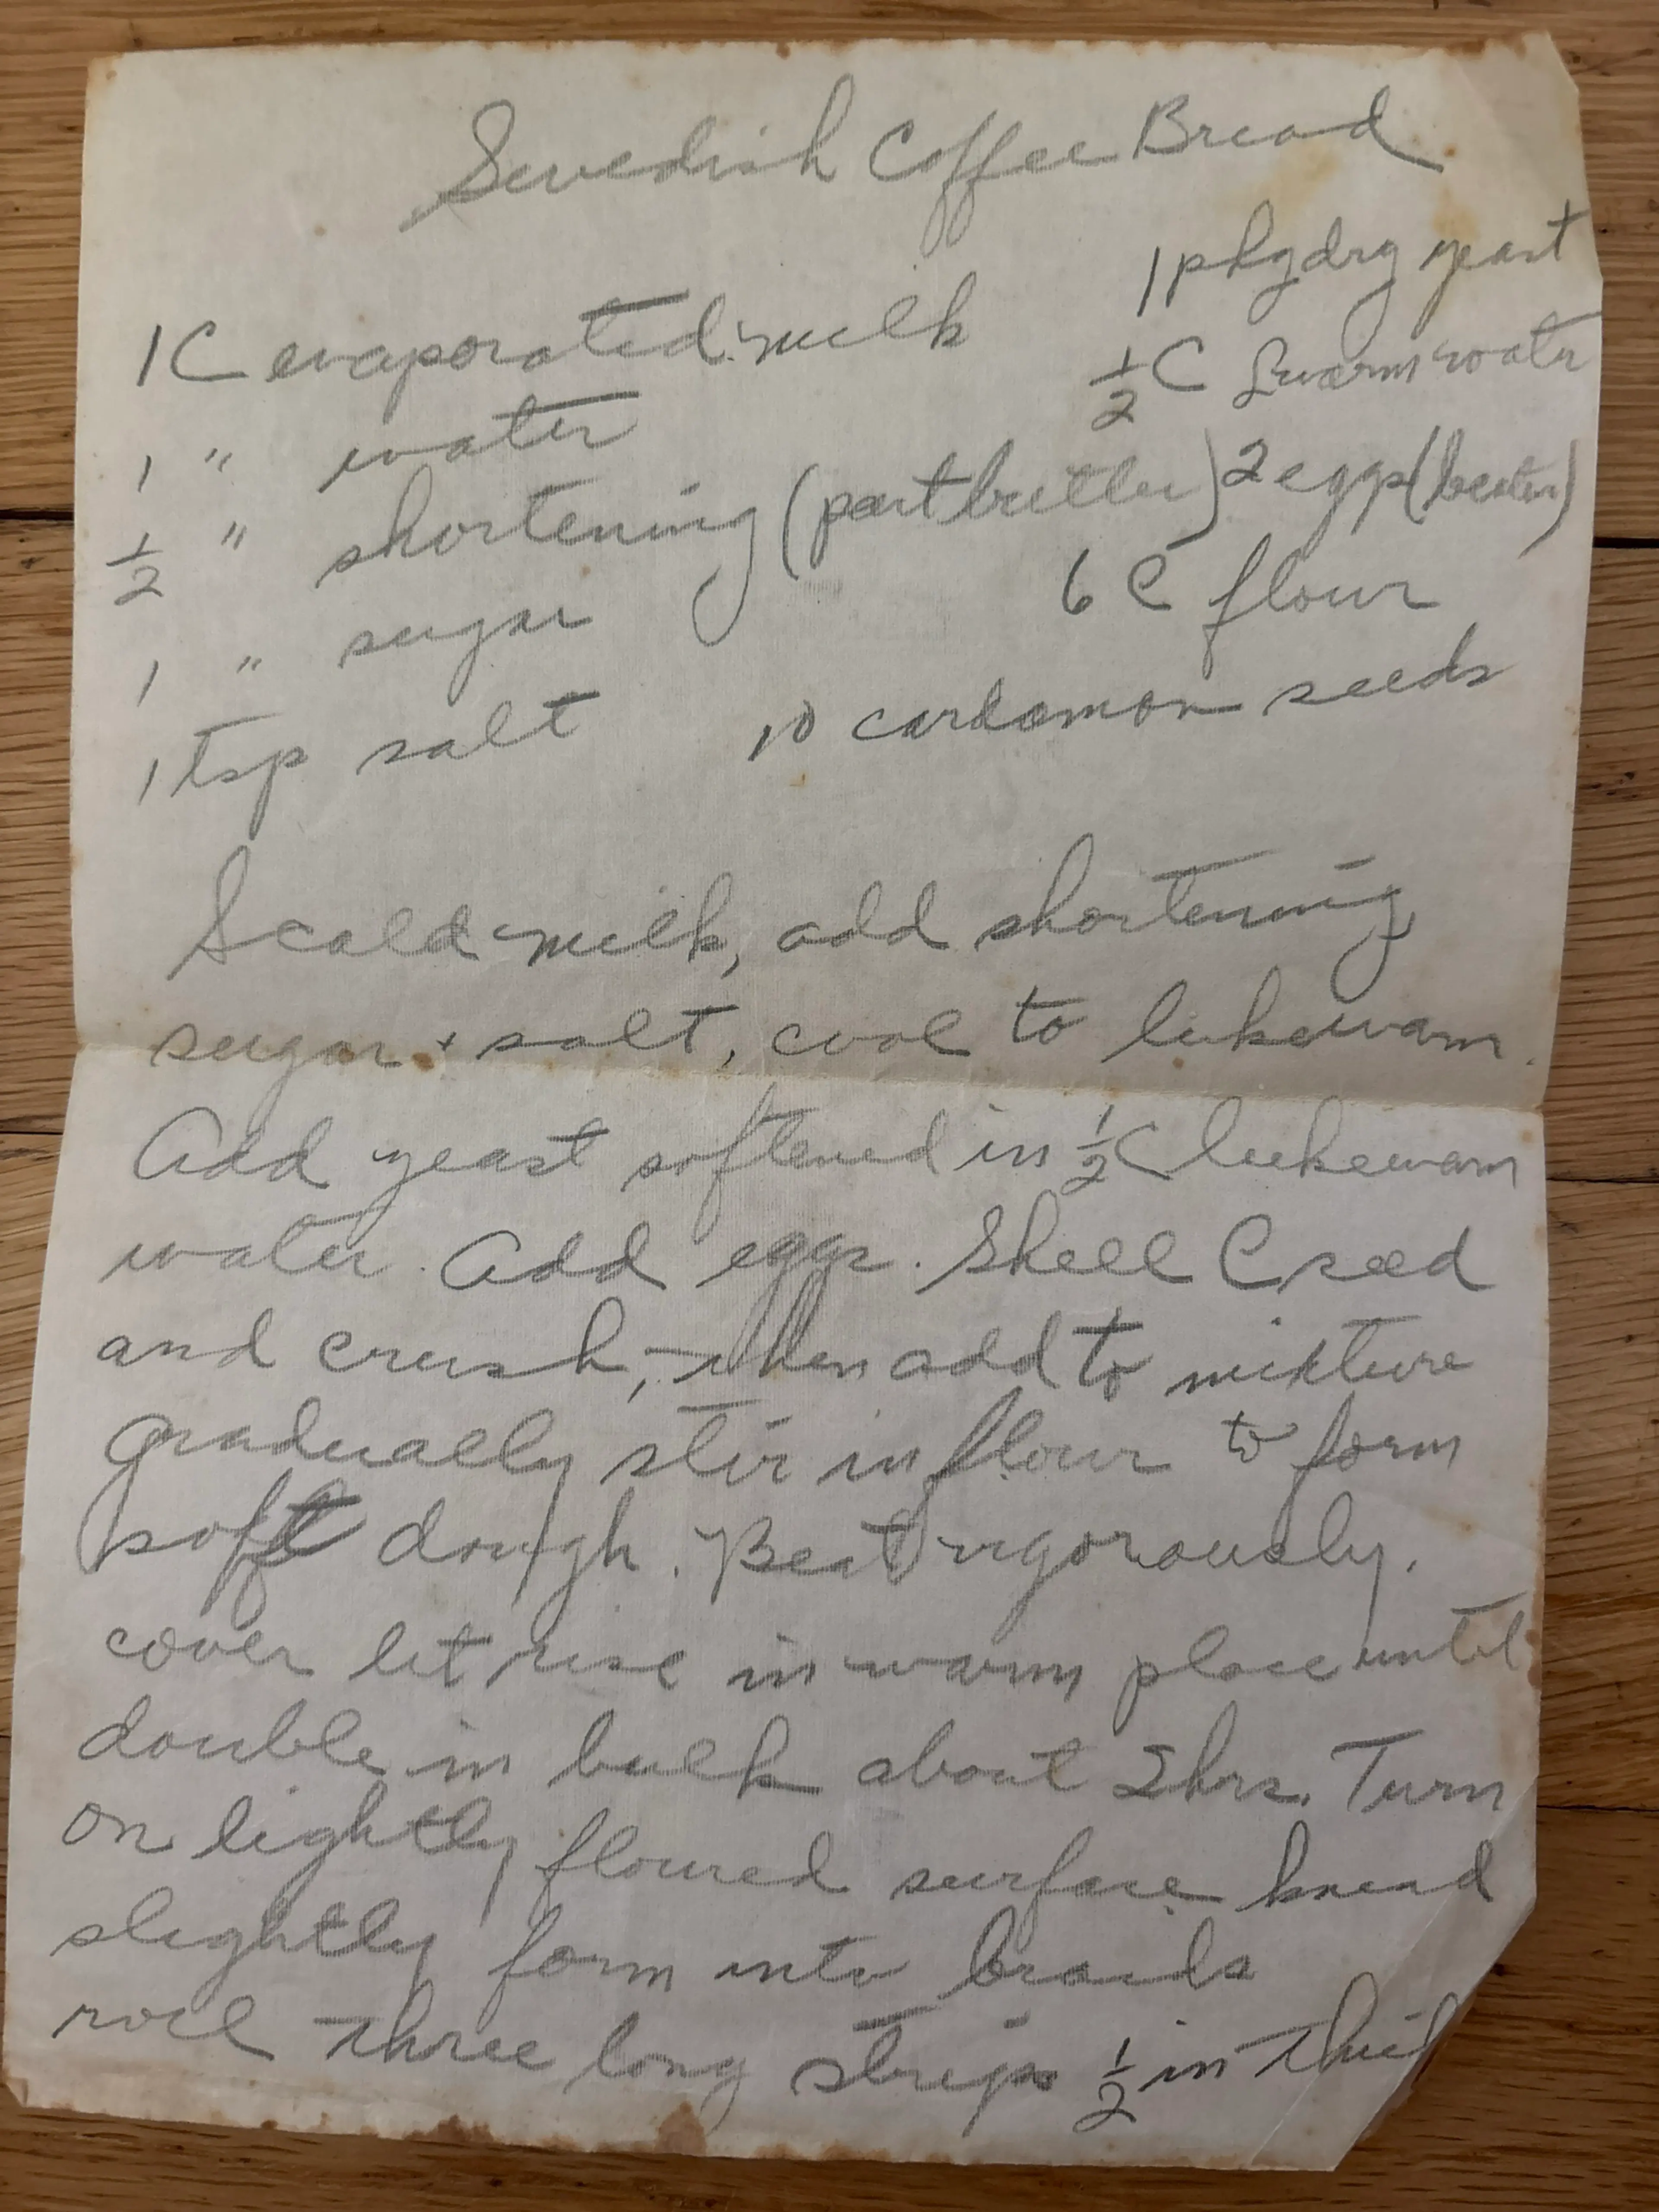 Swedish Coffee Bread
1 pkg dry yeast
1 C evaporated milk
½ C Luwarm water
1 " water
½ " shortening (part butter) 2 eggs (beaten)
1 " sugar
6 C flour
1 tsp salt
10 cardamon seeds
Scald milk, add shortening
sugar + salt, cool to lukewarm.
Add yeast softened in ½ C lukewarm
water. Add eggs. Shell C seed
and crush, then add to mixture
gradually stir in flour to form
soft dough. Beat vigorously.
cover let rise in warm place until
double in bulk about 2 hrs. Turn
on lightly floured surface knead
slightly form into braids
roll three long strips ½ in thick